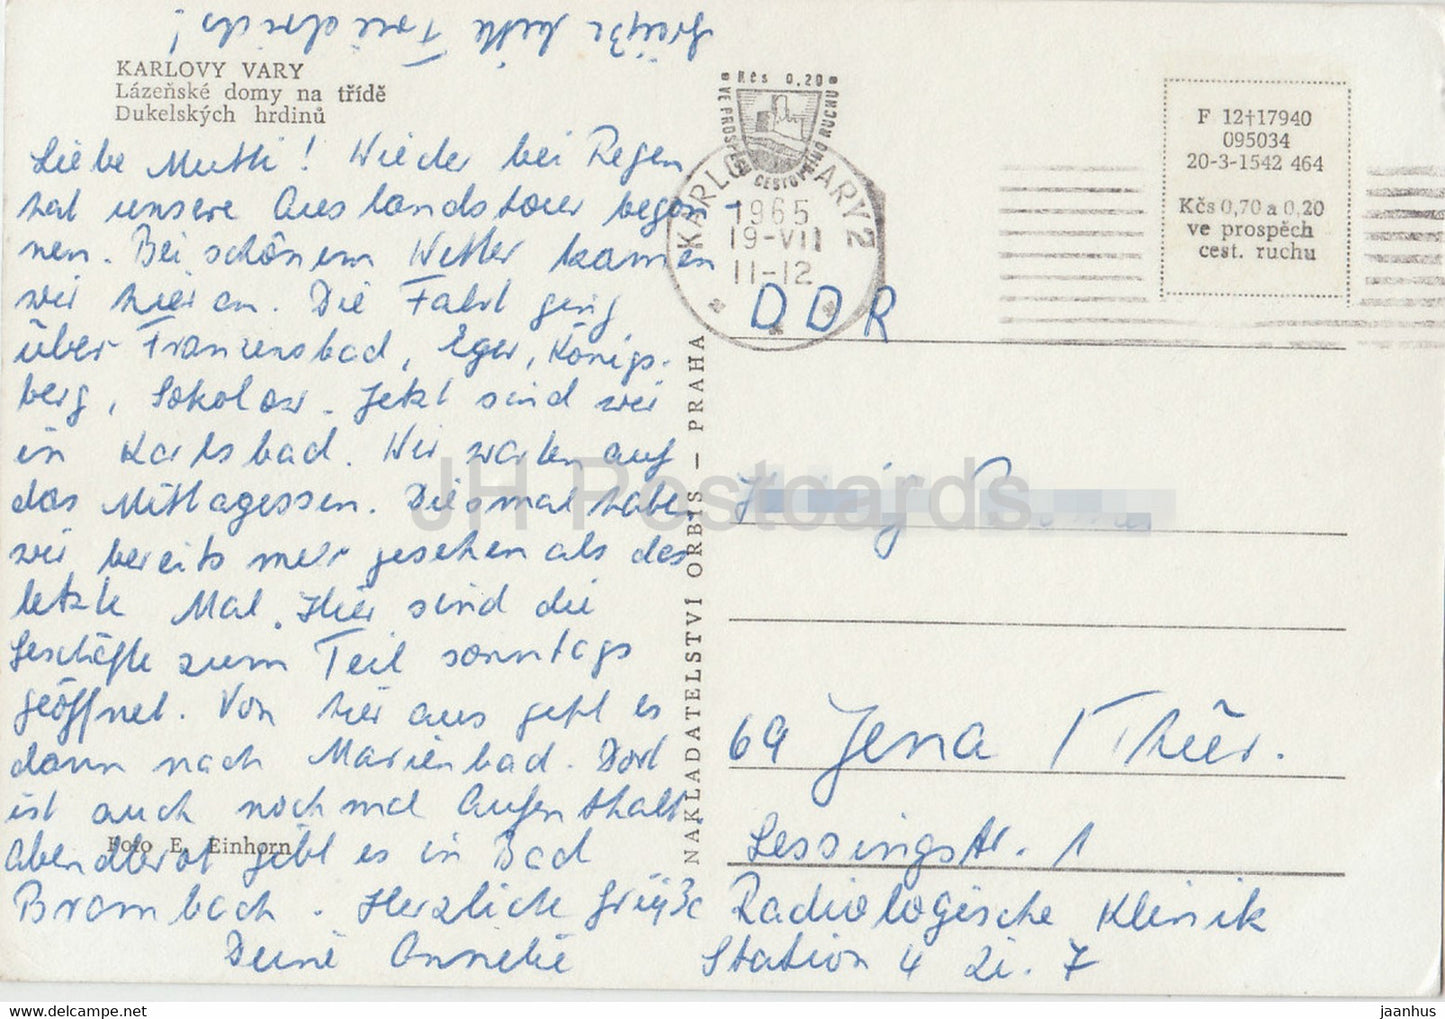 Grüße bitte Friedrich!
KARLOVY VARY
Lázeňské domy na třídě
Dukelských hrdinů
Liebe Mutti! Wieder bei Regen
hat unsere Auslandstour begon-
nen. Bei schönem Wetter kamen
wir hier an. Die Fahrt ging
über Franzensbad, Eger, Königs-
berg, Sokolow. Jetzt sind wir
in Karlsbad. Wir warten auf
das Mittagessen. Diesmal haben
wir bereits mehr gesehen als das
letzte Mal. Hier sind die
Geschäfte zum Teil sonntags
geöffnet. Von hier aus geht es
dann nach Marienbad. Dort
ist auch nochmal Aufenthalt.
Abendbrot gibt es in Bad
Brambach. Herzliche Grüße
Deine Annelie
Foto E. Einhorn
NAKLADATELSTVÍ ORBIS — PRAHA
Kčs 0,20
VE PROSPĚCH CESTOVNÍHO RUCHU
KARLOVY VARY 2
1965
19-VII
11-12
F 12†17940
095034
20-3-1542 464
Kčs 0,70 a 0,20
ve prospěch
cest. ruchu
DDR
69 Jena Thür.
Lessingstr. 1
Radiologische Klinik
Station 4 Zi. 7
JH Postcards
hipstamp.com
jaanhus